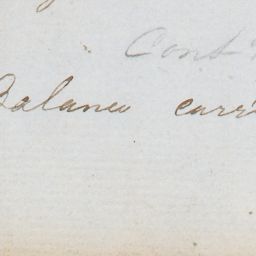 Cont
Balance carri